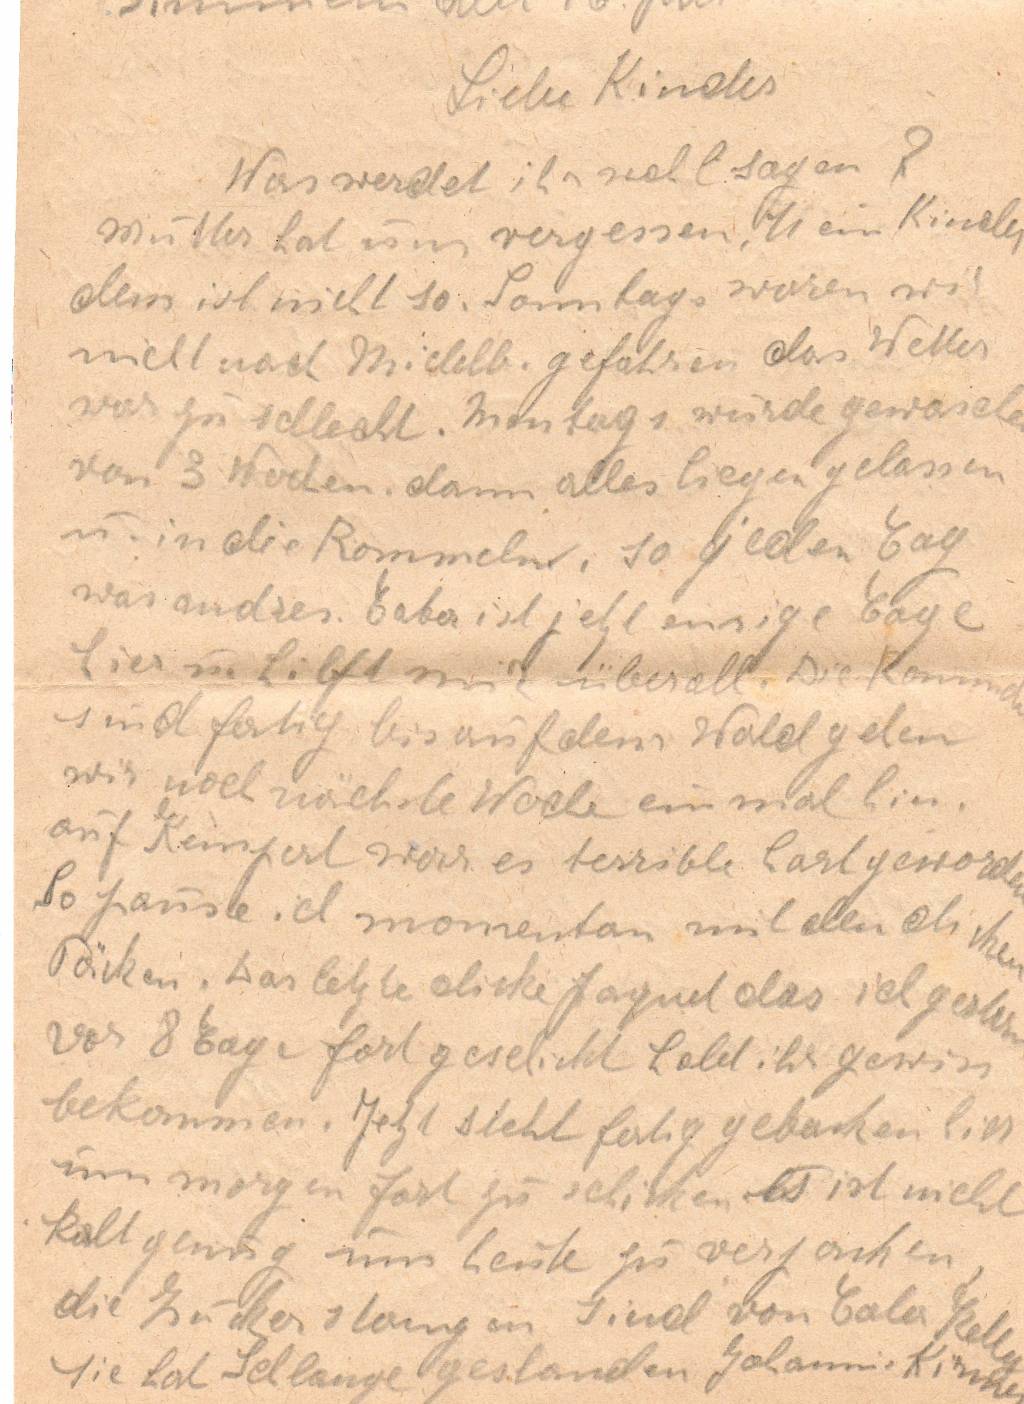 den 18. Juli
Liebe Kinder
Was werdet ihr wohl sagen?
Mutter hat uns vergessen, Nein Kinder
dem ist nicht so. Sonntags waren wir
nicht nach Middelb. gefahren das Wetter
war zu schlecht. Montags wurde gewaschen
von 3 Wochen. dann alles liegen gelassen
u. in die Rommeln, so jeden Tag
was andres. ist jetzt einige Tage
hier u. hilft mir überall. Die
sind fertig bis auf dem Wald gehen
wir noch nächste Woche einmal hin.
auf war es terrible hart geworden
So pause ich momentan mit den dicken
Päcken. Das letzte dicke Paquet das ich gestern
vor 8 Tage fort geschickt habt ihr gewiss
bekommen. Jetzt steht fertig gebacken hier
um morgen fort zu schicken es ist nicht
kalt genug um heute zu verpacken,
die Zuckerstangen sind von
sie hat Schlange gestanden Johanni-Kirmes